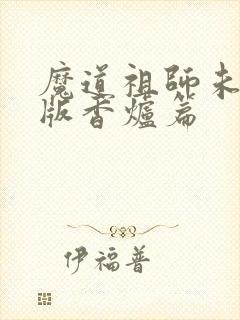 魔道祖師未
版香爐篇
伊福普